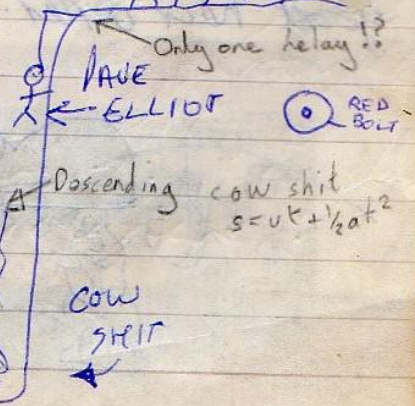 Only one belay!?
DAVE
ELLIOT
RED
BOLT
Descending cow shit
s=ut+½at²
COW
SHIT